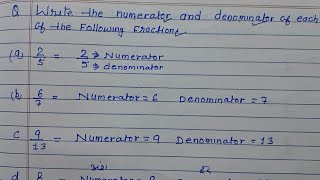 Q Write the numerator and denominator of each
of the Following Fractions
(a) 2/5 = 2 → Numerator
5 → denominator
(b) 6/7 = Numerator = 6 Denominator = 7
c 9/13 = Numerator = 9 Denominator = 13
अंश हर
d 8